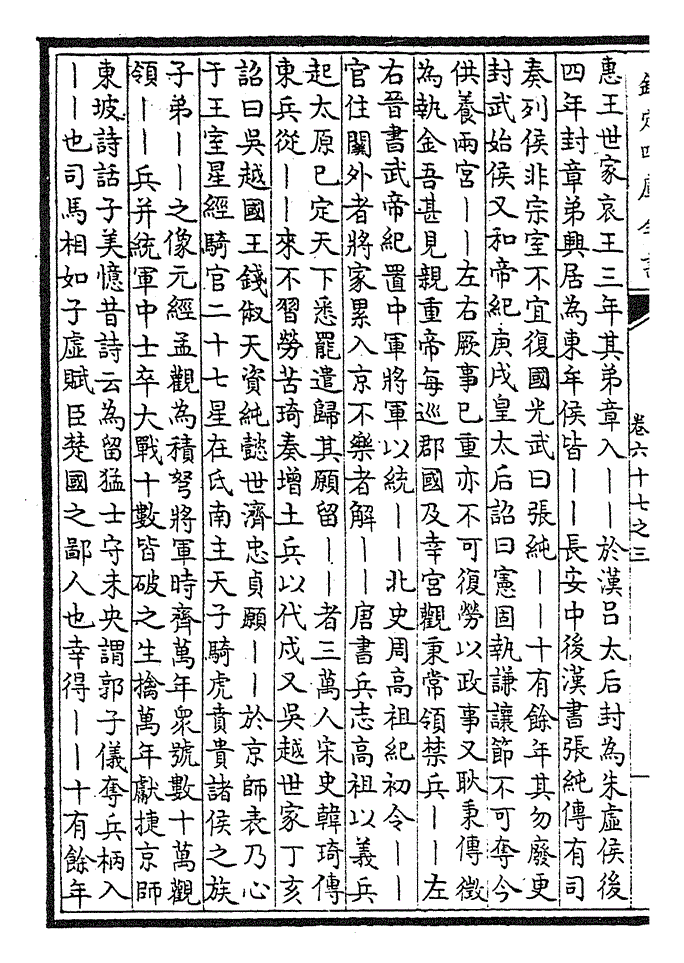 欽定四庫全書
卷六十七之三
惠王世家哀王三年其弟章入||於漢呂太后封為朱虛侯後
四年封章弟興居為東牟侯皆||長安中後漢書張純傳有司
奏列侯非宗室不宜復國光武曰張純||十有餘年其勿廢更
封武始侯又和帝紀庚戌皇太后詔曰憲固執謙讓節不可奪今
供養兩宮||左右厥事已重亦不可復勞以政事又耿秉傳徵
為執金吾甚見親重帝每巡郡國及幸宮觀秉常領禁兵||左
右晉書武帝紀置中軍將軍以統||北史周高祖紀初令||
官住關外者將家累入京不樂者解||唐書兵志高祖以義兵
起太原已定天下悉罷遣歸其願留||者三萬人宋史韓琦傳
東兵從||來不習勞苦琦奏增土兵以代戍又吳越世家丁亥
詔曰吳越國王錢俶天資純懿世濟忠貞願||於京師表乃心
于王室星經騎官二十七星在氐南主天子騎虎賁貴諸侯之族
子弟||之像元經孟觀為積弩將軍時齊萬年衆號數十萬觀
領||兵并統軍中士卒大戰十數皆破之生擒萬年獻捷京師
東坡詩話子美憶昔詩云為留猛士守未央謂郭子儀奪兵柄入
||也司馬相如子虛賦臣楚國之鄙人也幸得||十有餘年